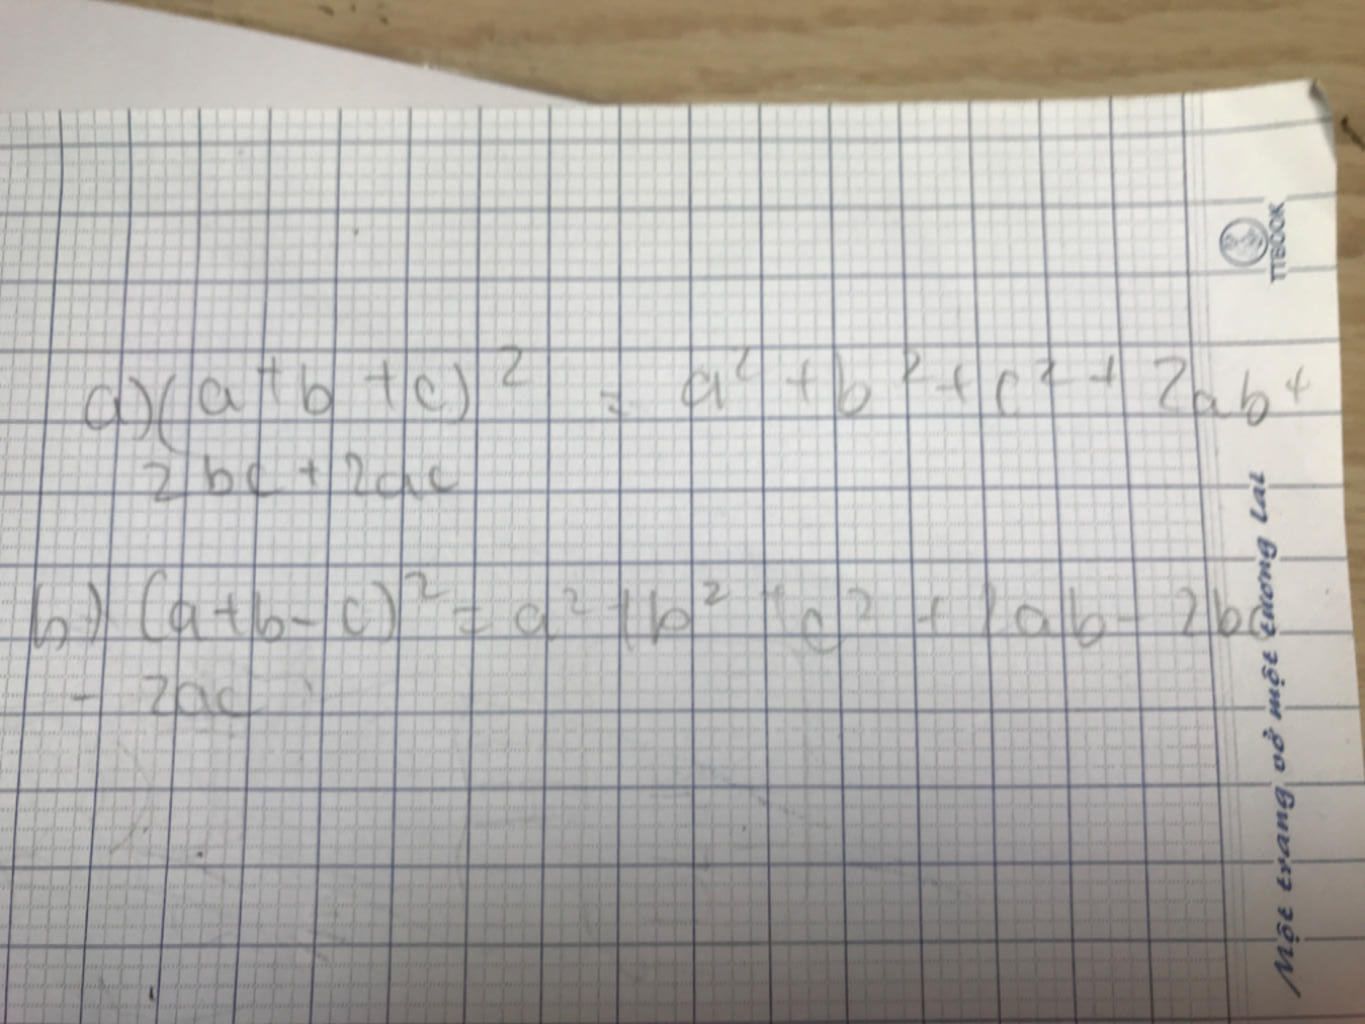 a) (a+b+c)² = a² + b² + c² + 2ab +
2bc + 2ac
b) (a+b-c)² = a² + b² + c² + 2ab - 2bc
- 2ac
TTBOOK
Một trang vở một tương lai